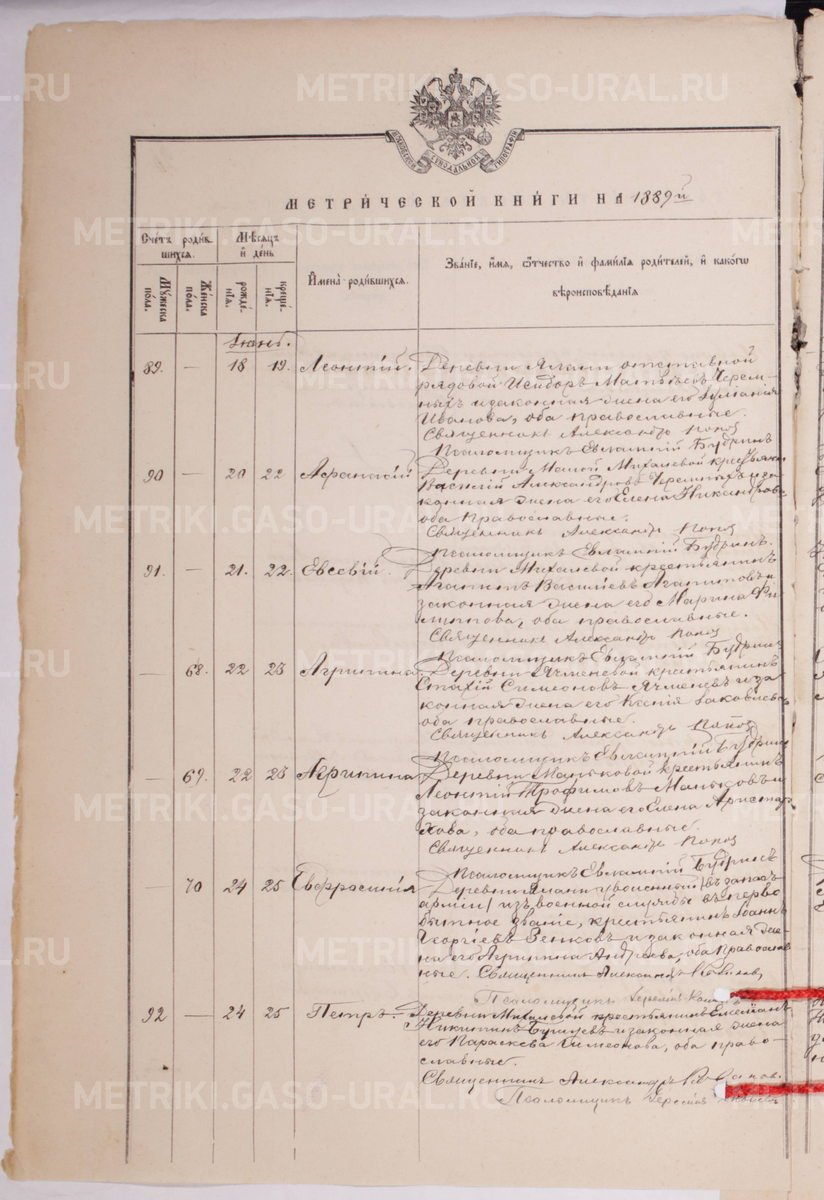 МЕТРИ́ЧЕСКОЙ КНИ́ГИ НА 1889й
Сче́тъ роди́вшихся.
Мужеска пола.
Женска пола.
Мѣсяцъ и день
рожденія.
крещенія.
Имена родившихся.
Званіе, имя, отчество и фамилія родителей, и какого вѣроисповѣданія
Іюнь.
89. — 18 19. Леонтій. Деревни Ялани отставной
рядовой Исидоръ Матѳеевъ Черем-
ныхъ и законная жена его
Иванова, оба православные.
Священникъ Александръ Попов
Псаломщикъ Евлампій Будринъ
90 — 20 22 Аѳанасій Деревни Малой Михалевой крестьянин
Василій Александровъ Черемныхъ и за
конная жена его Елена Никандрова
оба Православные.
Священникъ Александръ Попов
Псаломщикъ Евлампій Будринъ.
91. — 21. 22. Евсевій. Деревни Михалевой крестьянинъ
Агапитъ Василіевъ Агапитовъ и
законная жена его Марина Фи
липпова, оба православные.
Священникъ Александръ Попов
Псаломщикъ Евлампій Будринъ
— 68. 22 23 Агрипина Деревни Ячменевой крестьянинъ
Евстахій Симеоновъ Ячменевъ и за
конная жена его Ксенія Іаковлева
оба православные.
Священникъ Александръ Попов
Псаломщикъ Евлампій Будринъ
— 69. 22 23 Агрипина Деревни Маньковой крестьянинъ
Леонтій Трофимовъ Маньковъ и
законная жена его Елена Аристар
хова, оба православные.
Священникъ Александръ Попов
Псаломщикъ Евлампій Будринъ
— 70 24 25 Евфросинія Деревни Ялани уволенный /въ запасъ
арміи/ изъ военной службы въ перво
бытное званіе, крестьянинъ Іоаннъ
Георгіевъ Зенковъ и законная же-
на его Агрипина Андреева, оба Православ
ные. Священникъ Александръ
Псаломщикъ
92 — 24 25 Петръ. Деревни Михалевой крестьянинъ Емеліанъ
Никитинъ и законная жена
его Параскева Симеонова, оба право-
славные.
Священникъ Александръ
Псаломщикъ
METRIKI.GASO-URAL.RU